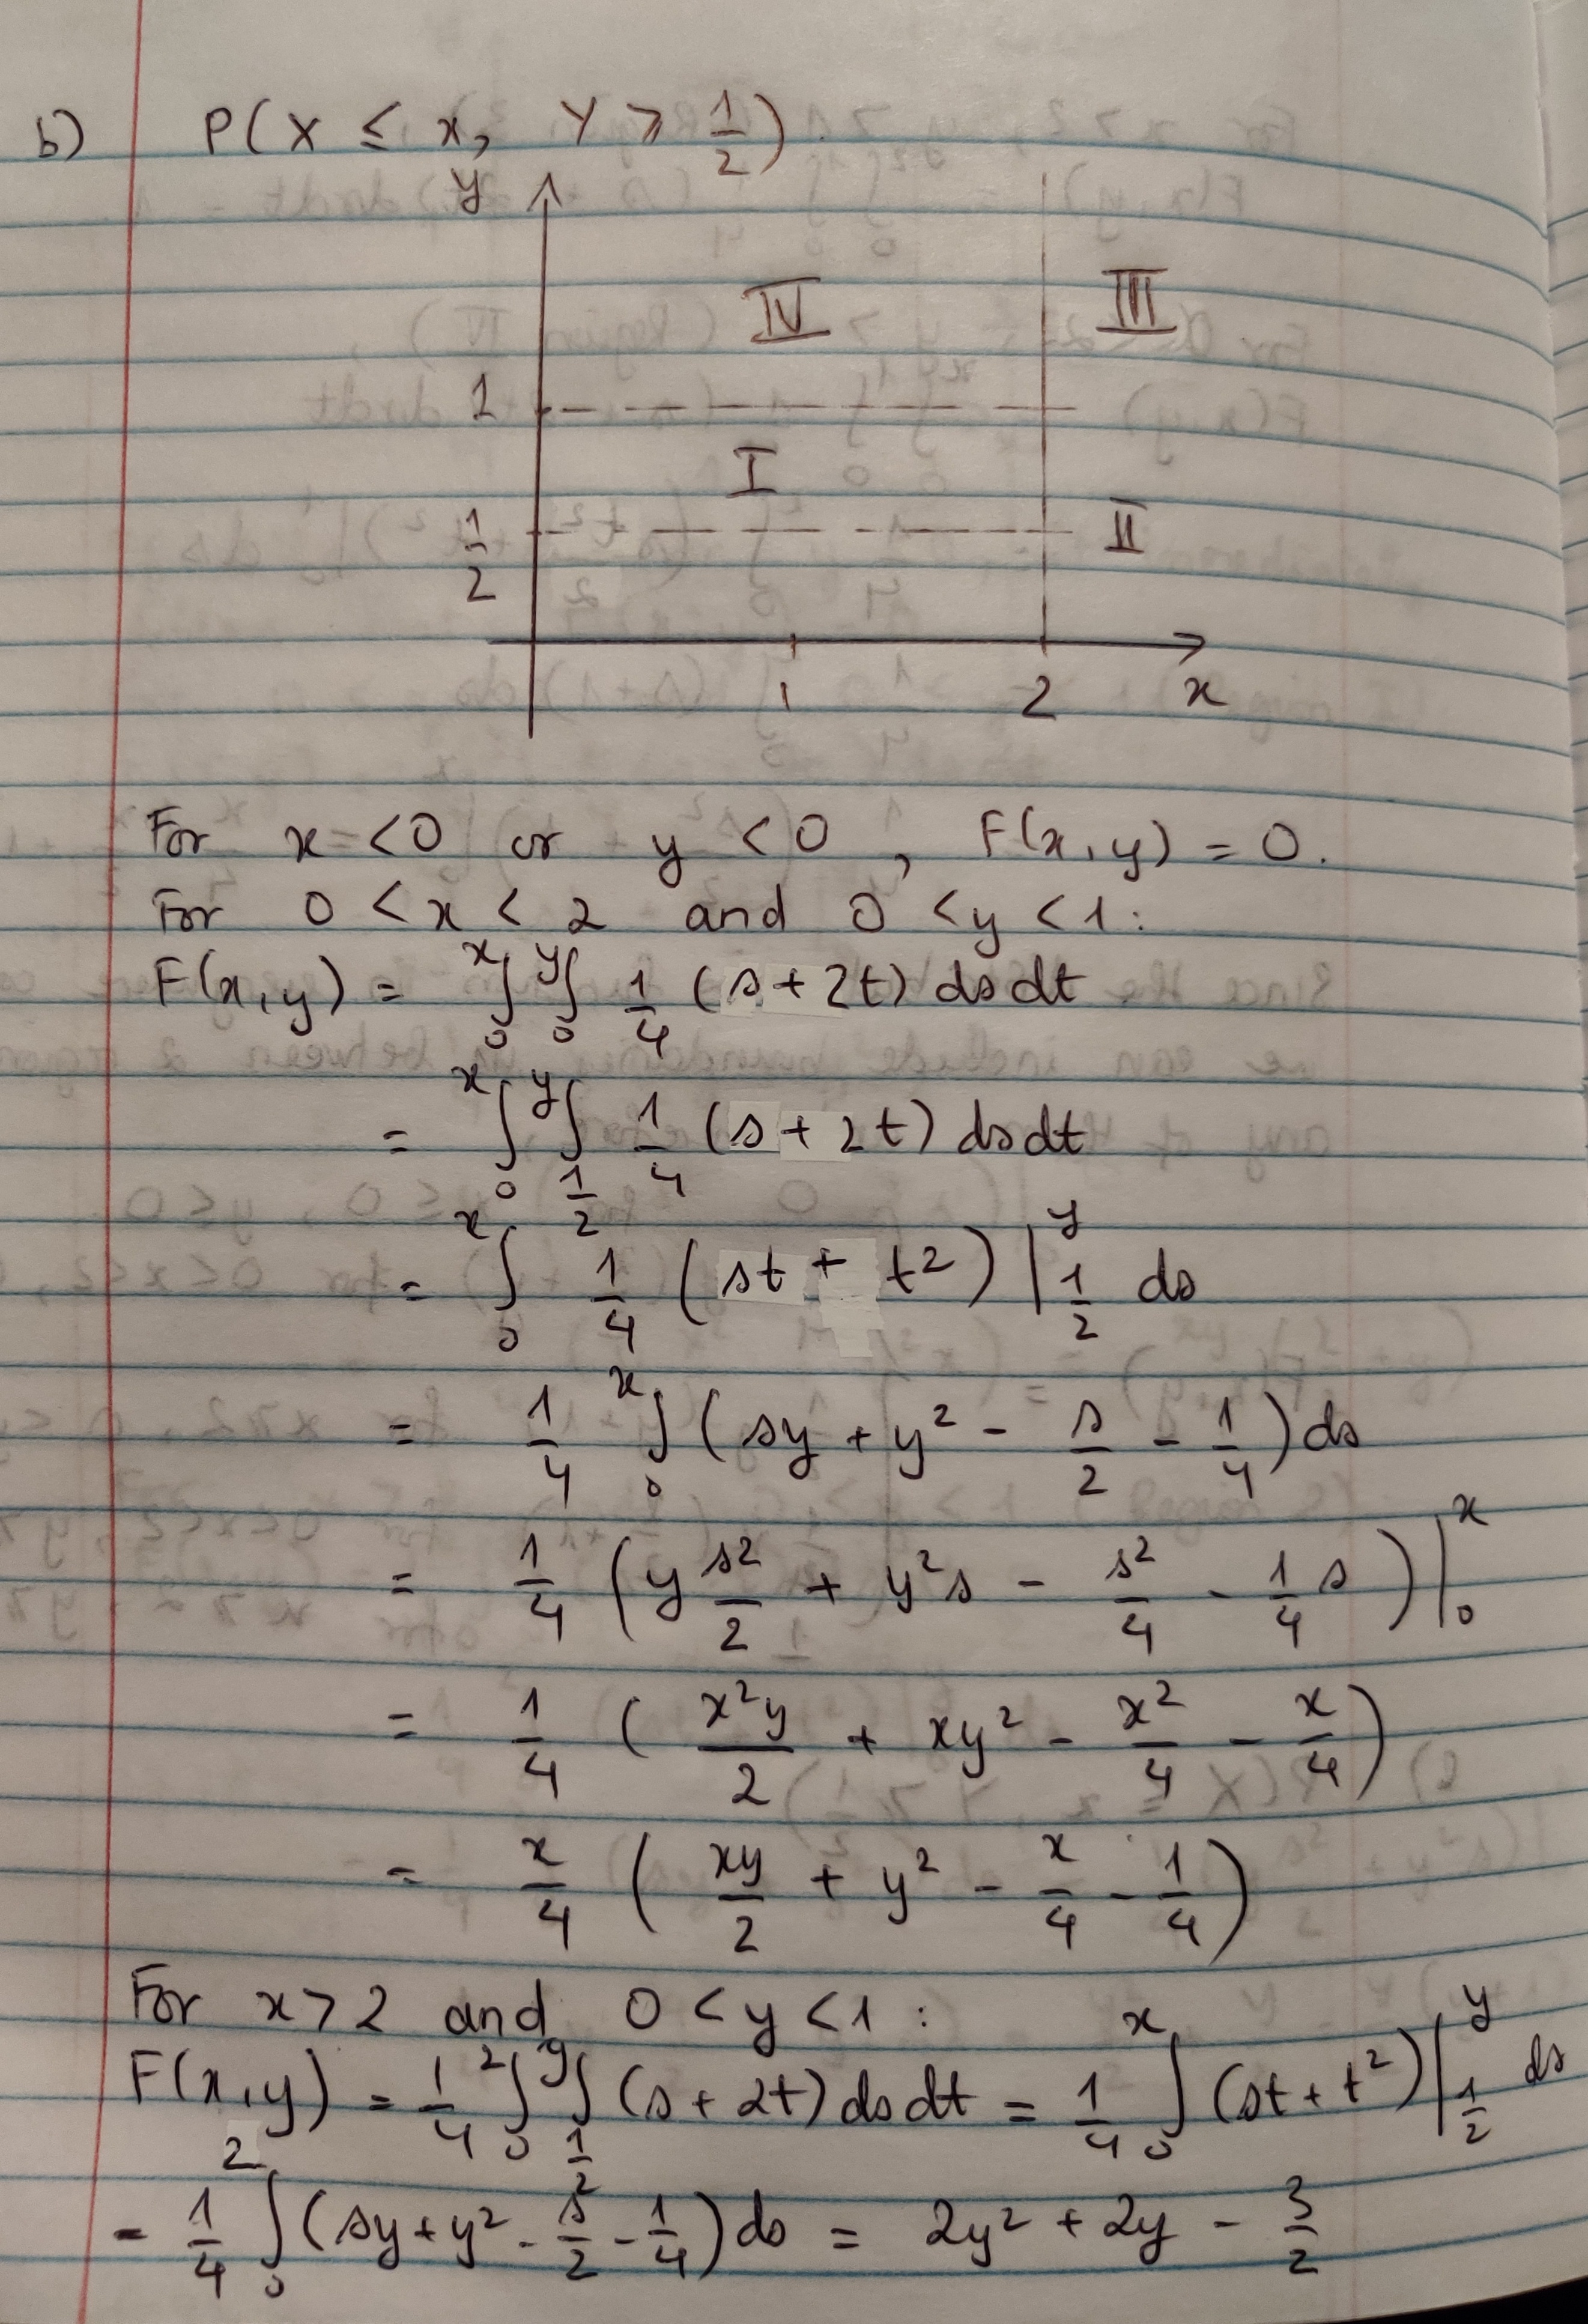 b) P(X ≤ x, Y > 1/2)
y
IV III
1
I
1/2 II
1 2 x
For x < 0 or y < 0, F(x,y) = 0.
For 0 < x < 2 and 0 < y < 1:
F(x,y) = ∫_0^x ∫_0^y 1/4 (s + 2t) ds dt
= ∫_0^x ∫_{1/2}^y 1/4 (s + 2t) ds dt
= ∫_0^x 1/4 (st + t²) |_{1/2}^y ds
= 1/4 ∫_0^x (sy + y² - s/2 - 1/4) ds
= 1/4 (y s²/2 + y²s - s²/4 - 1/4 s) |_0^x
= 1/4 (x²y/2 + xy² - x²/4 - x/4)
= x/4 (xy/2 + y² - x/4 - 1/4)
For x > 2 and 0 < y < 1:
F(x,y) = 1/4 ∫_0^2 ∫_{1/2}^y (s + 2t) ds dt = 1/4 ∫_0^x (st + t²) |_{1/2}^y ds
= 1/4 ∫_0^2 (sy + y² - s/2 - 1/4) ds = 2y² + 2y - 3/2